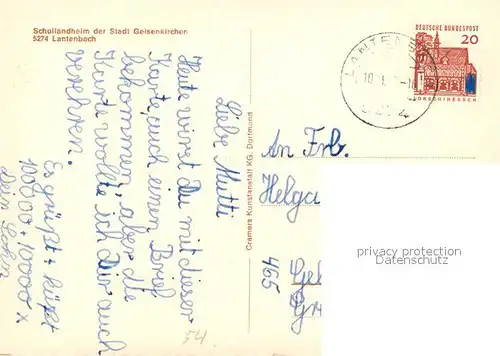 Schullandheim der Stadt Gelsenkirchen
5274 Lantenbach
Liebe Mutti
Heute wirst du mit dieser
Kart, auch einen Brief
bekommen, aber die
Karte wollte ich Dir auch
verehren.
Es grüßt + küßt
100000 + 10000 x
Dein
Cramers Kunstanstalt KG, Dortmund
DEUTSCHE BUNDESPOST
20
LORSCH/HESSEN
An Frb.
Helga
465
Gel
54.
privacy protection
AnsichtskartenLexikon